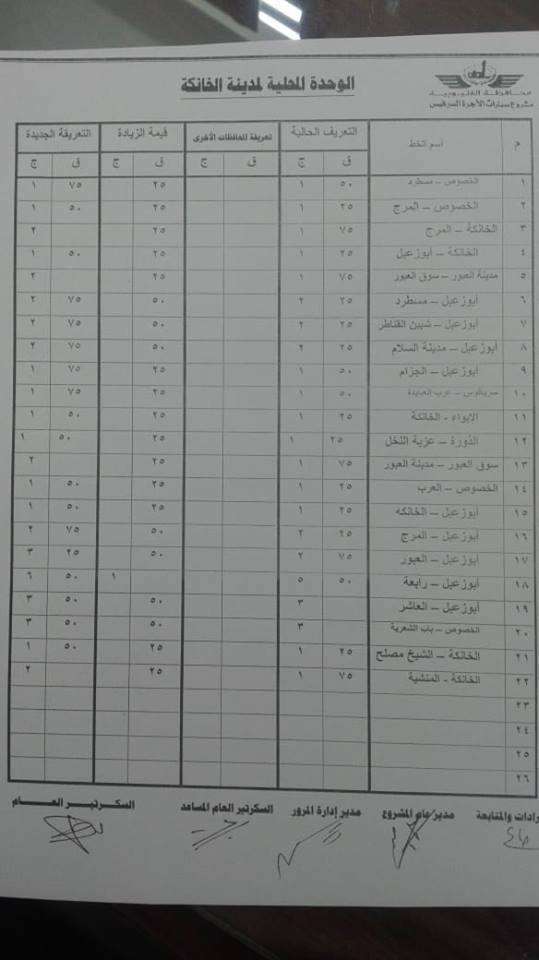 محافظة القليوبية
مشروع سيارات الأجرة السرفيس
الوحدة المحلية لمدينة الخانكة
م اسم الخط التعريف الحالية تعريفة للمحافظات الأخرى قيمة الزيادة التعريفة الجديدة
ق ج ق ج ق ج ق ج
١ الخصوص – مسطرد ٥٠ ١ ٢٥ ٧٥ ١
٢ الخصوص – المرج ٢٥ ١ ٢٥ ٥٠ ١
٣ الخانكة – المرج ٧٥ ١ ٢٥ ٢
٤ الخانكة – أبوزعبل ٢٥ ١ ٢٥ ٥٠ ١
٥ مدينة العبور – سوق العبور ٧٥ ١ ٢٥ ٢
٦ أبوزعبل – مسطرد ٢٥ ٢ ٥٠ ٧٥ ٢
٧ أبوزعبل – شبين القناطر ٢٥ ٢ ٥٠ ٧٥ ٢
٨ أبوزعبل – مدينة السلام ٢٥ ٢ ٥٠ ٧٥ ٢
٩ أبوزعبل – الحزام ٥٠ ١ ٢٥ ٧٥ ١
١٠ سرياقوس – عرب العيايدة ٥٠ ١ ٢٥ ٧٥ ١
١١ الايواء - الخانكة ٢٥ ١ ٢٥ ٥٠ ١
١٢ الذورة – عزبة النخل ٢٥ ١ ٢٥ ٥٠ ١
١٣ سوق العبور – مدينة العبور ٧٥ ١ ٢٥ ٢
١٤ الخصوص – العرب ٢٥ ١ ٢٥ ٥٠ ١
١٥ أبوزعبل – الخانكه ٢٥ ١ ٢٥ ٥٠ ١
١٦ أبوزعبل – المرج ٢٥ ٢ ٥٠ ٧٥ ٢
١٧ أبوزعبل – العبور ٧٥ ٢ ٥٠ ٢٥ ٣
١٨ أبوزعبل – رابعة ٥٠ ٥ ١ ٥٠ ٦
١٩ أبوزعبل – العاشر ٣ ٥٠ ٥٠ ٣
٢٠ الخصوص – باب الشعرية ٣ ٥٠ ٥٠ ٣
٢١ الخانكة – الشيخ مصلح ٢٥ ١ ٢٥ ٥٠ ١
٢٢ الخانكة - المنشية ٧٥ ١ ٢٥ ٢
٢٣
٢٤
٢٥
٢٦
رادات والمتابعة مدير عام المشروع مدير إدارة المرور السكرتير العام المساعد السكرتير العام